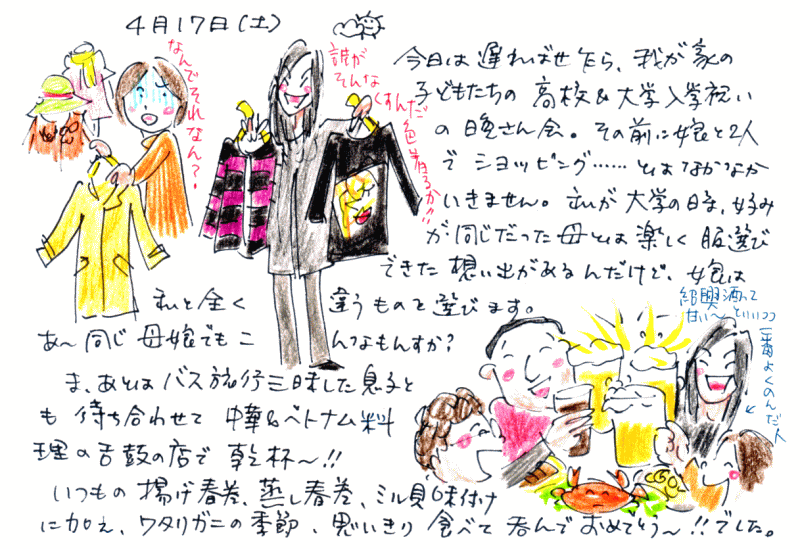 4月17日(土)
なんでそれなん?
誰がそんなくすんだ色着るか!!
今日は遅ればせ乍ら、我が家の
子どもたちの高校&大学入学祝い
の晩さん会。その前に娘と2人
でショッピング……とはなかなか
いきません。私が大学の日時、好み
が同じだった母とは楽しく服選び
できた想い出があるんだけど、娘は
私と全く違うものを選びます。
あ〜同じ母娘でもこんなもんすか?
ま、あとはバス旅行三昧した息子と
も待ち合わせて中華&ベトナム料
理の舌鼓の店で乾杯〜!!
いつもの揚げ春巻、蒸し春巻、ミル貝味付け
に加え、ワタリガニの季節、思いきり食べて呑んでおめでとう〜!!でした。
紹興酒って
甘い〜といいつつ
一番よくのんだ人